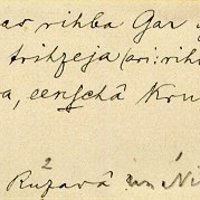 as rihba Gar
trihzeja (ari: rih
a, eenſchâ Kru
2
Ružavâ un Ni